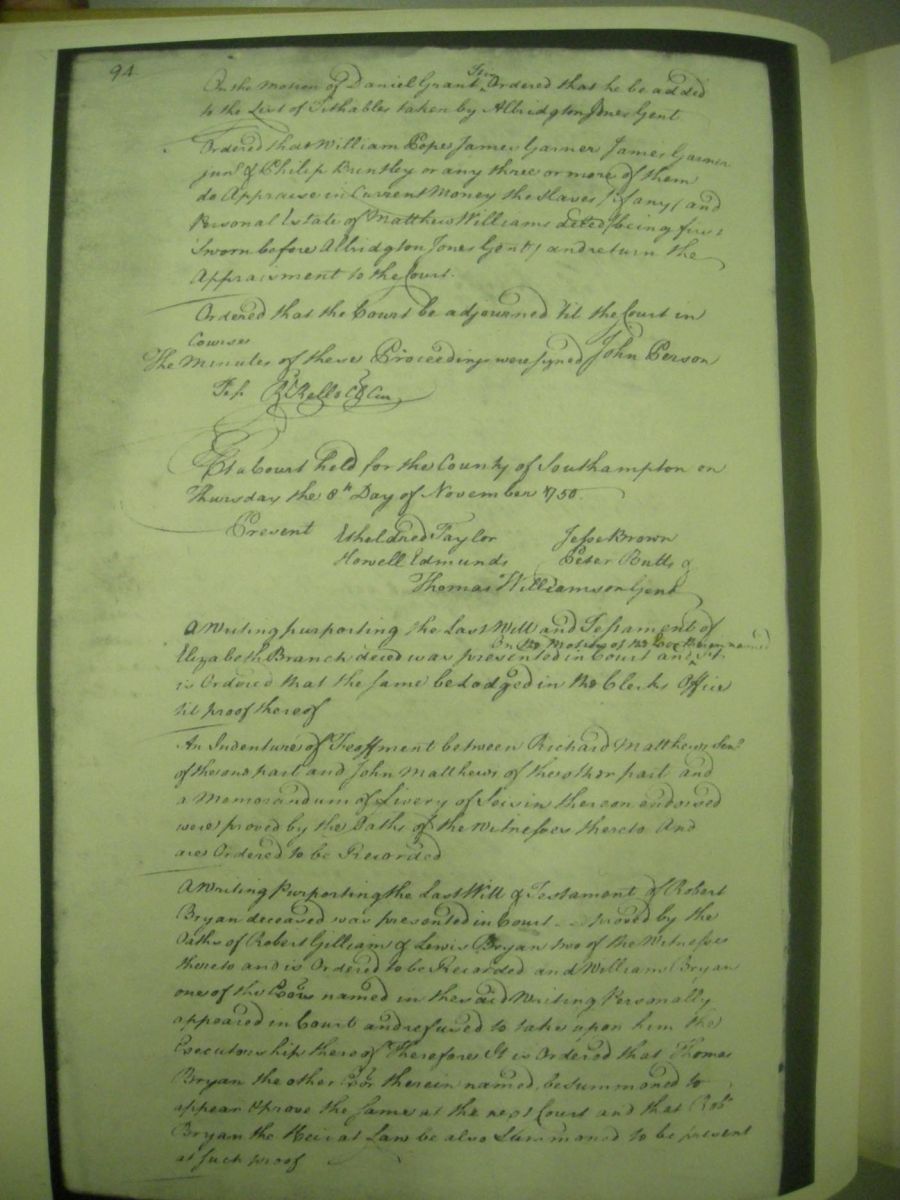 94
On the motion of Daniel Grant Junr Ordered that he be added
to the List of Tithables taken by Albridgton Jones Gent
Ordered that William Pope James Garner James Garner
junr & Philip Bruntley or any three or more of them
do Appraise in Current Money the Slaves (if any) and
Personal Estate of Matthew Williams deced (being first
Sworn before Albridgton Jones Gent) and return the
Appraisment to the Court.
Ordered that the Court be adjourned 'til the Court in
Course
The Minutes of these Proceedings were signed John Person
Test R Kello Cl Cur
At a Court held for the County of Southampton on
Thursday the 8th Day of November 1750.
Present Etheldred Taylor Jesse Brown
Howell Edmunds Peter Butts &
Thomas Williamson Gent
A Writing purporting the Last Will and Testament of
On the Motion of the therein named
Elizabeth Branch deced was presented in Court and it
is Ordered that the same be Lodged in the Clerks Office
til proof thereof
An Indenture of Feoffment between Richard Matthews Senr
of the one part and John Matthews of the other part and
a Memorandum of Livery of Seisin thereon endorsed
were proved by the Oaths of the Witnesses thereto And
are Ordered to be Recorded
A Writing Purporting the Last Will & Testament of Robert
Bryan deceased was presented in Court proved by the
Oaths of Robert Gilliam & Lewis Bryan two of the Witnesses
thereto and is Ordered to be Recorded and William Bryan
one of the Exors named in the said Writing Personally
appeared in Court and refused to take upon him the
Executorship thereof Therefore It is Ordered that Thomas
Bryan the other Exor therein named, be summoned to
appear & prove the same at the next Court and that Robt
Bryan the Heir at Law be also Summoned to be present
at such proof